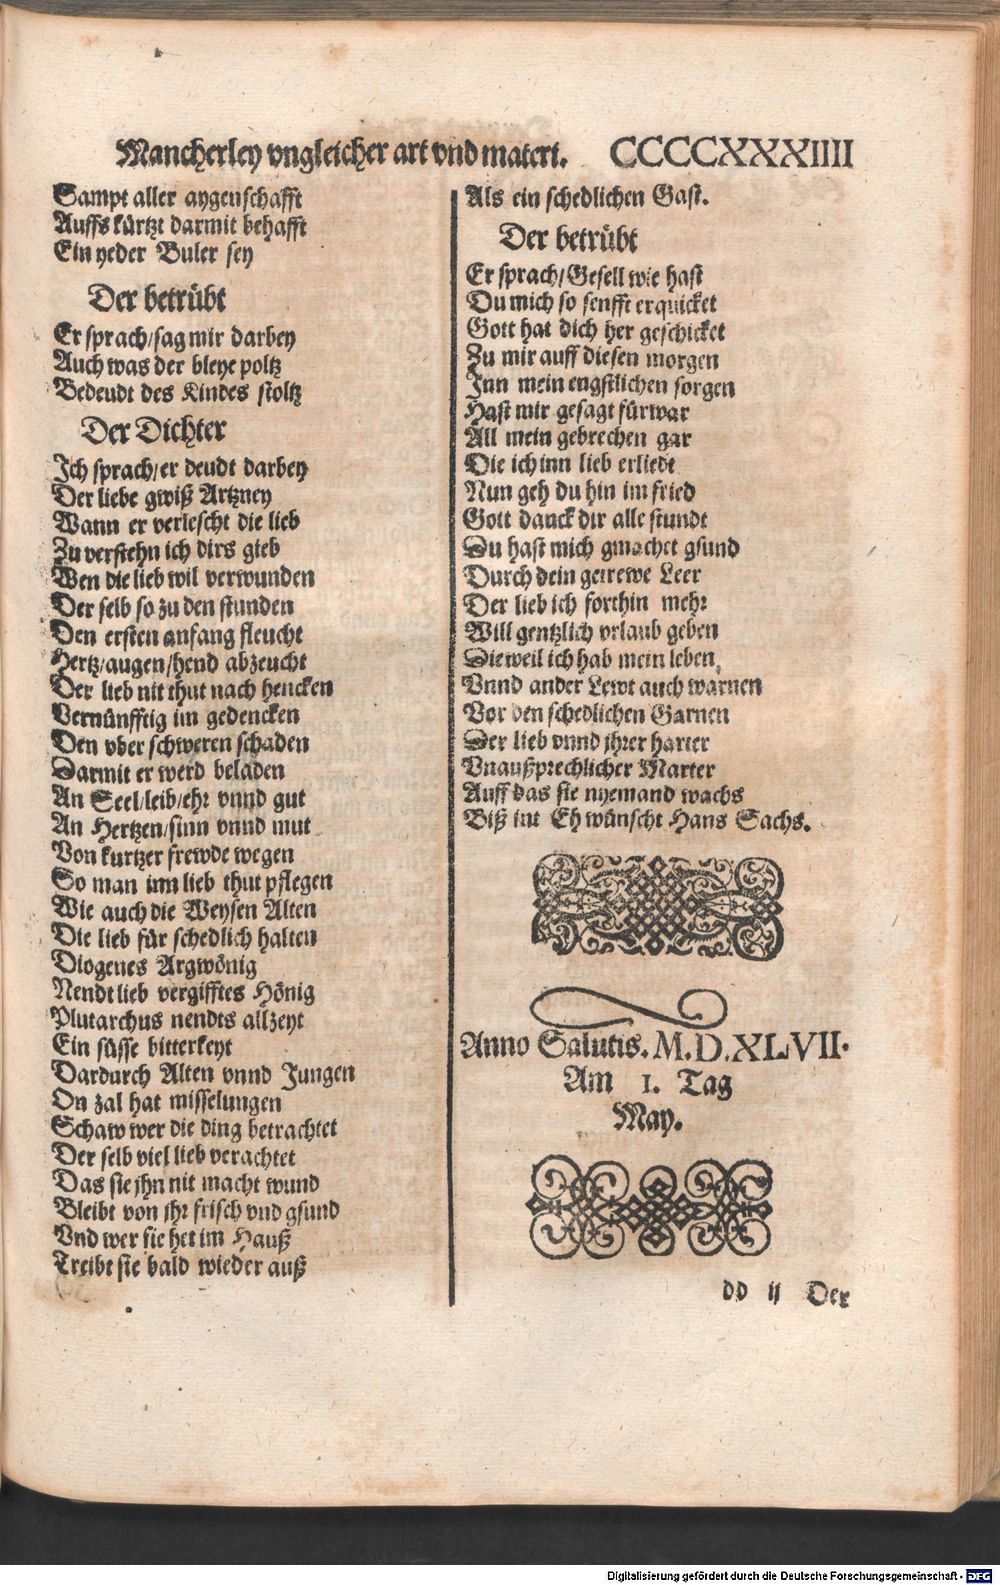 Mancherley vngleicher art vnd materi. CCCCXXXIIII
Sampt aller aygenschafft
Auffs kürtzt darmit behafft
Ein yeder Buler sey
Der betrübt
Er sprach/sag mir darbey
Auch was der bleye poltz
Bedeudt des Kindes stoltz
Der Dichter
Ich sprach/er deudt darbey
Der liebe gwiß Artzney
Wann er verlescht die lieb
Zu verstehn ich dirs gieb
Wen die lieb wil verwunden
Der selb so zu den stunden
Den ersten anfang fleucht
Hertz/augen/hend abzeucht
Der lieb nit thut nach hencken
Vernünfftig im gedencken
Den vber schweren schaden
Darmit er werd beladen
An Seel/leib/ehr vnnd gut
An Hertzen/sinn vnnd mut
Von kurtzer frewde wegen
So man inn lieb thut pflegen
Wie auch die Weysen Alten
Die lieb für schedlich halten
Diogenes Argwönig
Nendt lieb vergifftes Hönig
Plutarchus nendts allzeyt
Ein süsse bitterkeyt
Dardurch Alten vnnd Jungen
On zal hat misselungen
Schaw wer die ding betrachtet
Der selb viel lieb verachtet
Das sie jhn nit macht wund
Bleibt von jhr frisch vnd gsund
Vnd wer sie het im Hauß
Treibt sie bald wieder auß
Als ein schedlichen Gast.
Der betrübt
Er sprach/Gesell wie hast
Du mich so senfft erquicket
Gott hat dich her geschicket
Zu mir auff diesen morgen
Inn mein engstlichen sorgen
Hast mir gesagt fürwar
All mein gebrechen gar
Die ich inn lieb erliedt
Nun geh du hin im fried
Gott danck dir alle stundt
Du hast mich gmachet gsund
Durch dein getrewe Leer
Der lieb ich forthin mehr
Will gentzlich vrlaub geben
Dieweil ich hab mein leben,
Vnnd ander Lewt auch warnen
Vor den schedlichen Garnen
Der lieb vnnd jhrer harter
Vnaußprechlicher Marter
Auff das sie nyemand wachs
Biß int Eh wünscht Hans Sachs.
Anno Salutis. M.D.XLVII.
Am 1. Tag
May.
dd ij Der
Digitalisierung gefördert durch die Deutsche Forschungsgemeinschaft - DFG